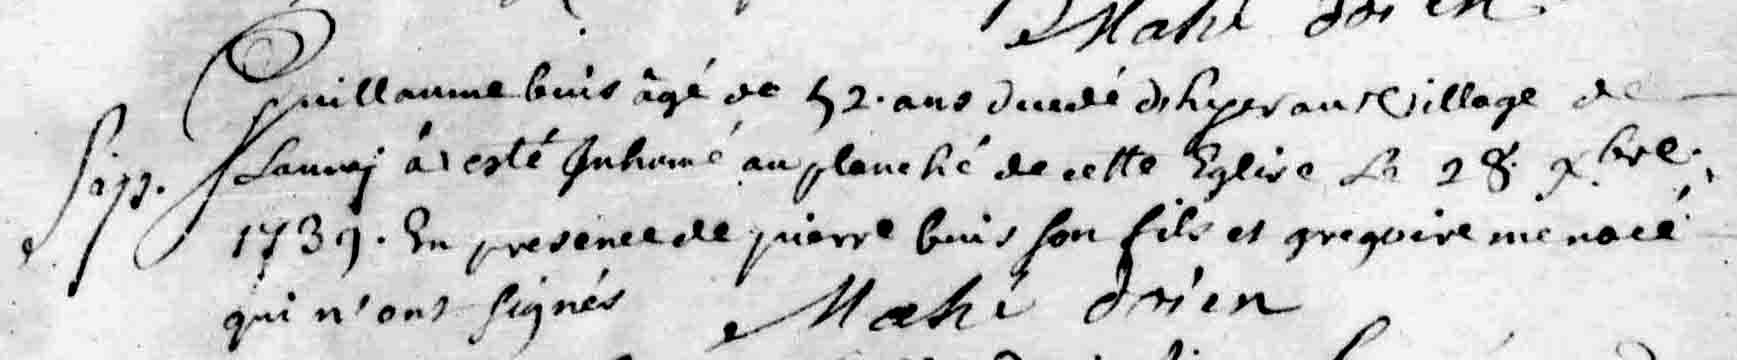 Mahé doien
Guillaume buis âgé de 52. ans decedé d'hyer au village de
Sep.
Launaj à esté Inhumé au planché de cette Eglise Le 28. xbre.
1739. En presence de pierre buis son fils et gregoire menacé
qui n'ont signés Mahé doien